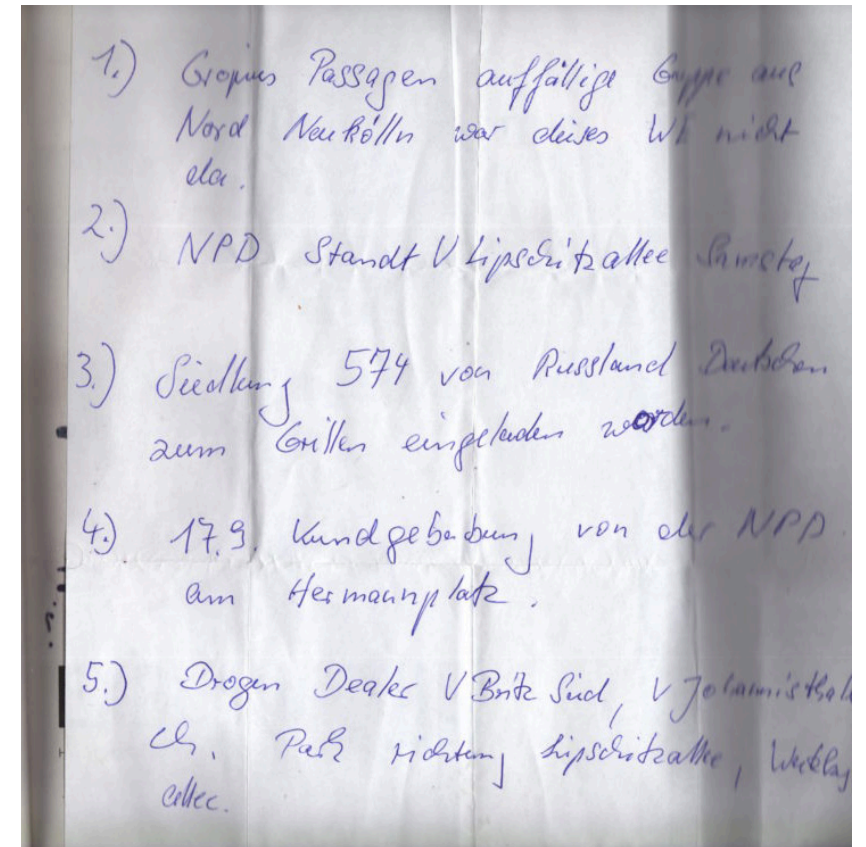 1.) Gropius Passagen auffällige Gruppe aus
Nord Neukölln war dieses WE nicht
da.
2.) NPD Standt U Lipschitzallee Samstag
3.) Siedlung 574 von Russland Deutschen
zum Grillen eingeladen worden.
4.) 17.9. Kundgebung von der NPD
am Hermannplatz.
5.) Drogen Dealer U Britz Süd, U Johannisthal
Ch. Park richtung Lipschitzallee,
allee.